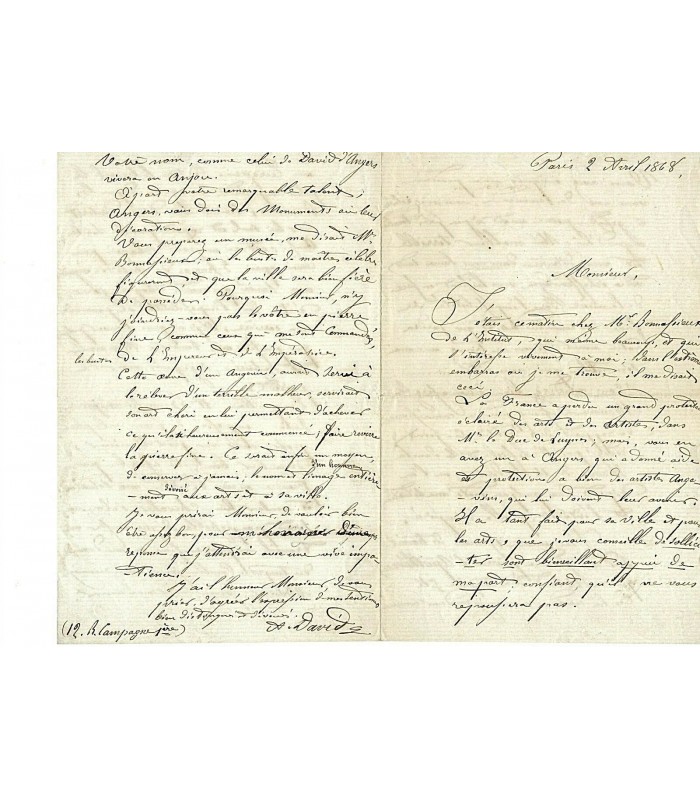 Paris 2 Avril 1868,
Monsieur,
J'étais ce matin chez Mr. Bonnassieux
de l'Institut, qui m'aime beaucoup, et qui
s'intéresse vivement à moi; dans l'
embarras où je me trouve, il me disait
ceci.
La France a perdu un grand protecteur
éclairé des arts et des artistes, dans
Mr. le Duc de Luynes; mais, vous en
avez un à Angers, qui a donné aide
et protection à bien des artistes Ange-
-vins, qui lui doivent leur avenir.
Il a tant fait pour sa ville et pour
les arts, que je vous conseille de sollici-
-ter son bienveillant appui de
ma part; confiant qu'il ne vous
repoussera pas.
Votre nom, comme celui de David d'Angers
vivera en Anjou.
Apart votre remarquable talent,
Angers, vous doit des Monuments ou leurs
décorations.
Vous preparez un musée, me disait Mr.
Bonnassieux; où les bustes de maîtres célèbres
figureront et que la ville sera bien fière
de posséder. Pourquoi Monsieur, n'y
joindriez-vous pas le vôtre en pierre
fine, comme ceux qui me sont Commandés,
les bustes de L'Empereur et de L'Impératrice.
Cette œuvre d'un Angevin, aurait servi à
le relever d'un terrible malheur, servirait
son art cheri en lui permettant d'achever
ce qu'il a si heureusement commencé; faire revivre
la pierre fine. Ce serait enfin un moyen,
de conserver à jamais; le nom et l'image d'un homme entière-
-ment dévoué aux arts et à sa ville.
Je vous prierai Monsieur, de vouloir bien
être assez bon, pour m'honorer d'une
reponse que j'attendrai avec une vive impa-
-tience.
J'ai l'honneur Monsieur, de vous
prier, d'agréer l'expression de mes sentiments
bien distingués et dévoués.
A. David
(12. R. Campagne 1ère)